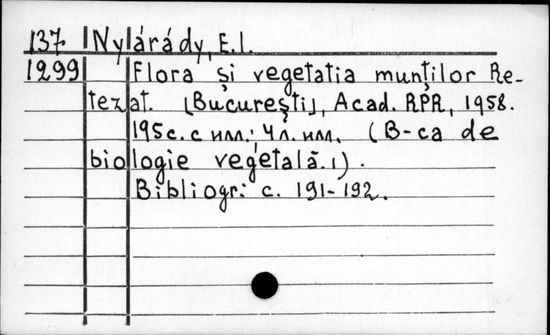 137 Nylárády, E.I.
1299 Flora și vegetatia munților Re-
tezat. [București], Acad. RPR, 1958.
195 с. с илл.; 4 л. илл. (B-ca de
biologie vegetală. 1).
Bibliogr.: с. 191-192.